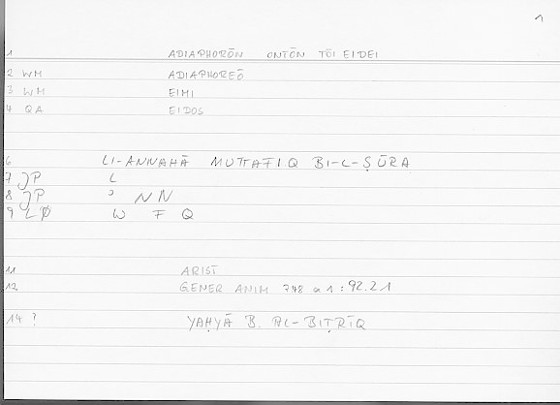 1
1 ADIAPHORŌN ONTŌN TŌI EIDEI
2 WM ADIAPHOREŌ
3 WM EIMI
4 QA EIDOS
6 LI-ANNAHĀ MUTTAFIQ BI-L-ṢŪRA
7 JP L
8 JP ʾ N N
9 LØ W F Q
11 ARIST
12 GENER ANIM 748 a 1 : 92.21
14 ? YAḤYĀ B. AL-BIṬRĪQ